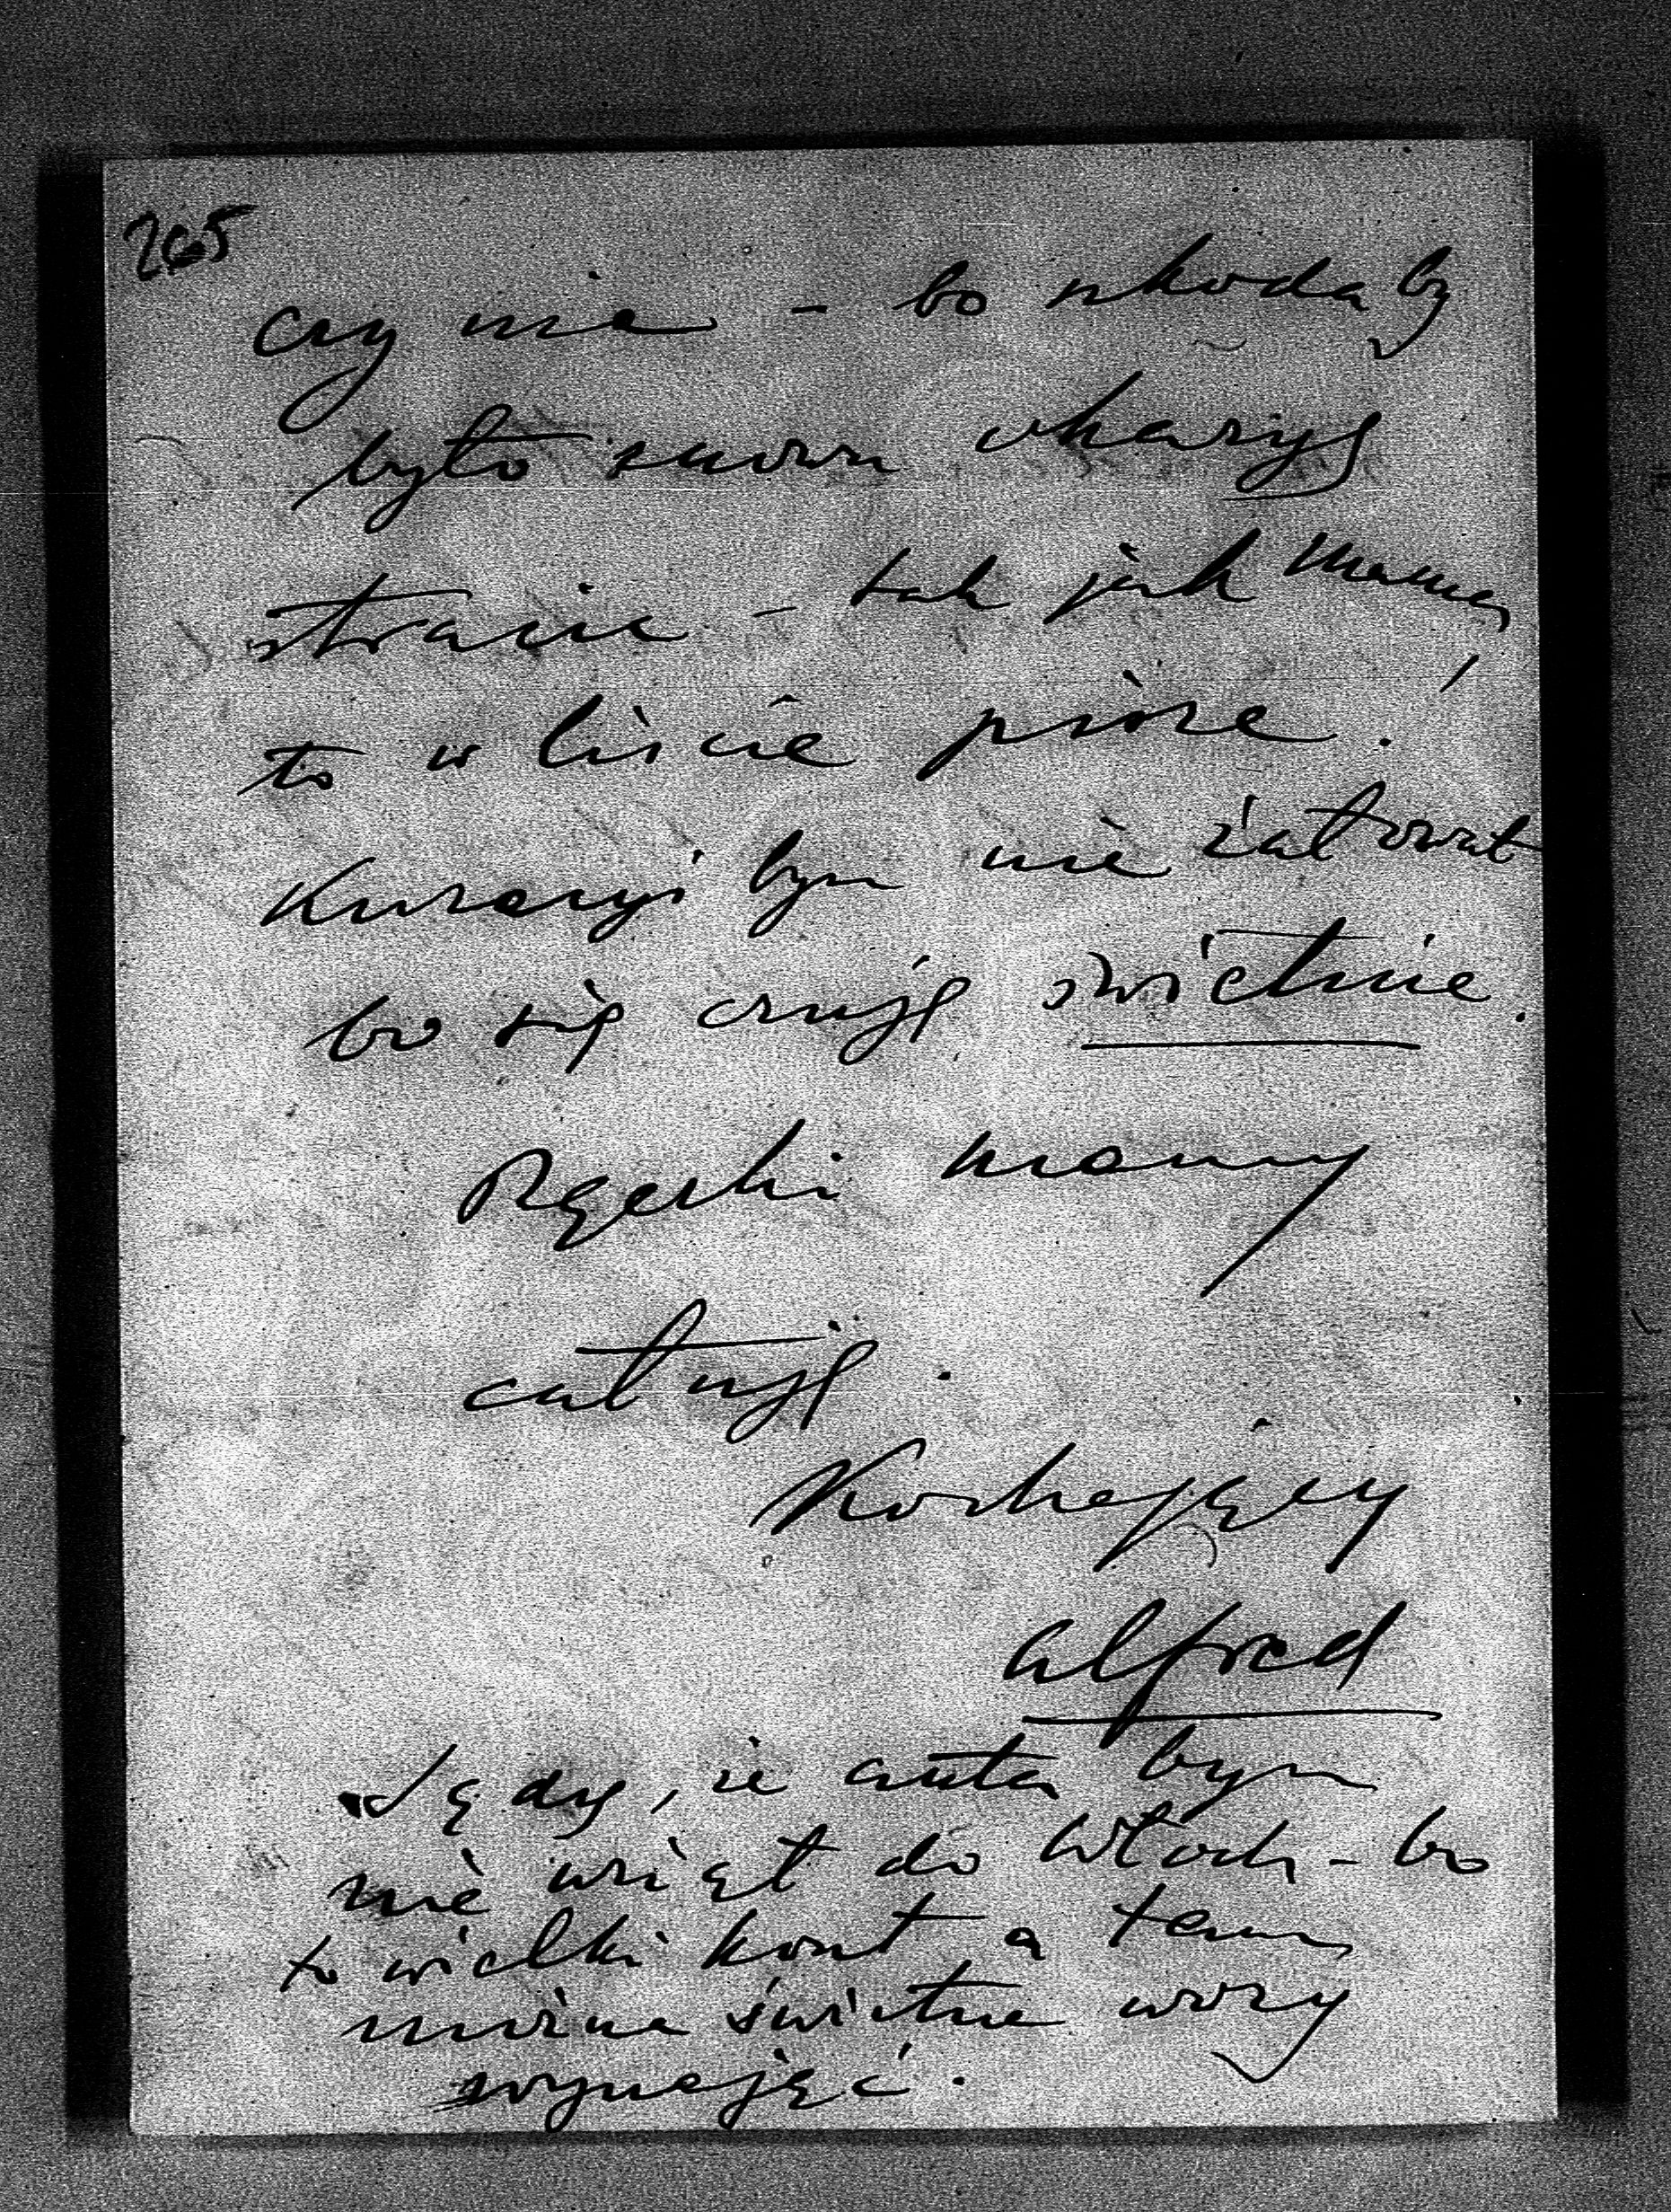 265
czy nie - bo szkoda by
było znowu okazyę
stracić - tak jak Mama
to w liście pisze!
Kuracyi bym nie żałował
bo się czuję świetnie.
Rączki Mamy
całuję.
Kochający
Alfred
Sądzę, że auta bym
nie wziął do Włoch - bo
to wielki koszt a tam
można świetne wozy
wynająć.